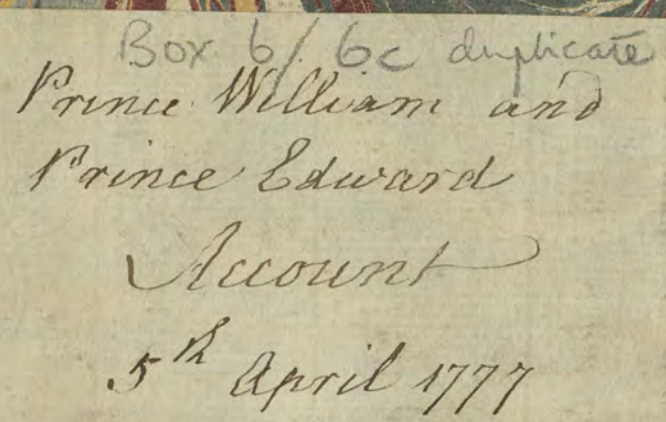 Box 6/6c duplicate
Prince William and
Prince Edward
Account
5th April 1777